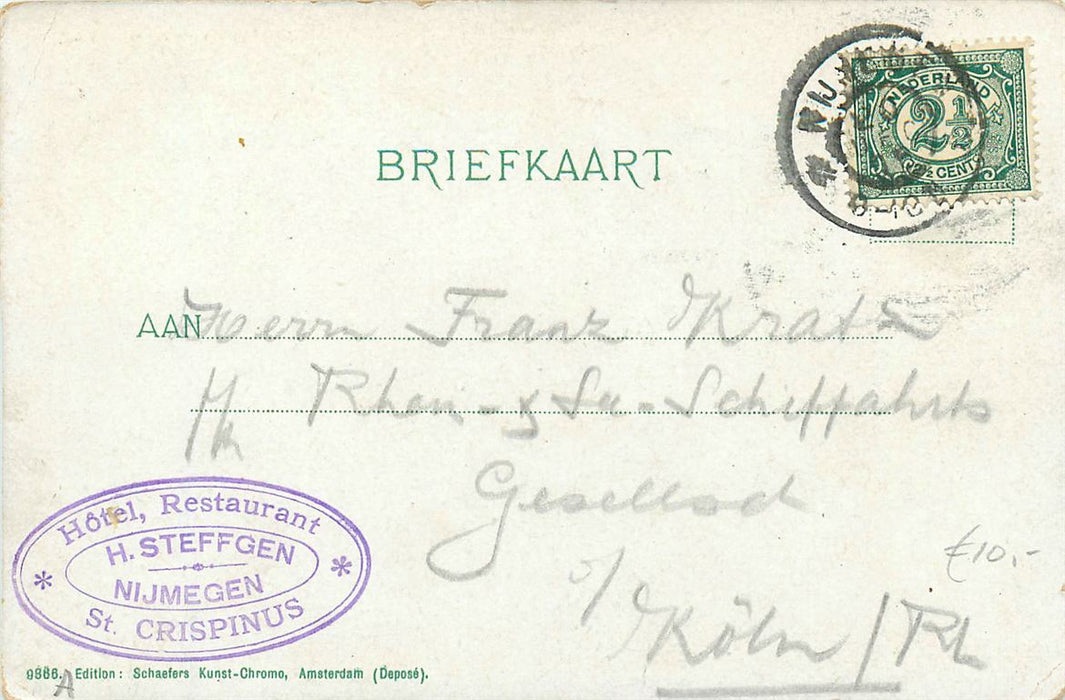 BRIEFKAART
NEDERLAND
2½
2½ CENT
NIJM
8-10
AAN Herrn Franz Kratz
Rhein- & See-Schiffahrts
Gesellsch
Köln / Rh
€10,-
Hôtel, Restaurant
H. STEFFGEN
NIJMEGEN
St. CRISPINUS
9866. Edition: Schaefers Kunst-Chromo, Amsterdam (Deposé).
A